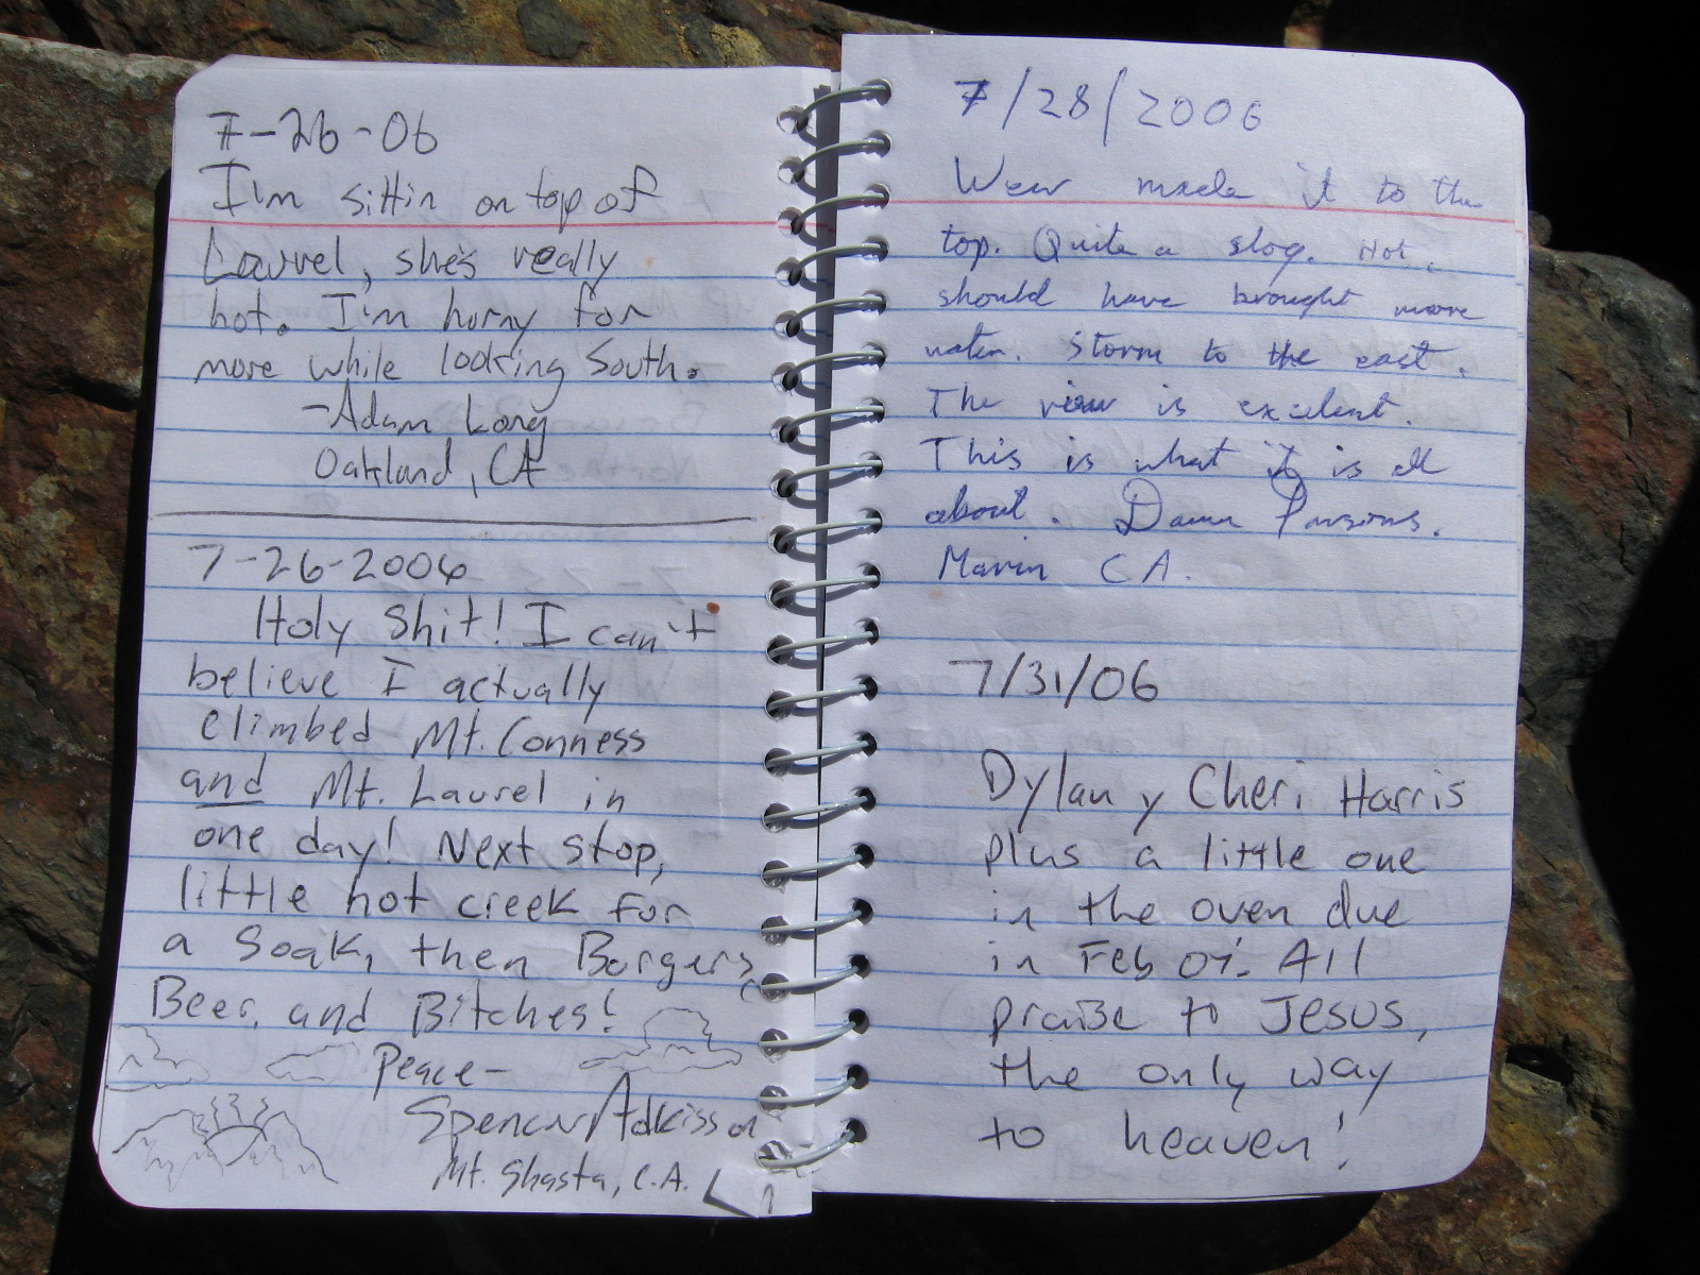 7-26-06
I'm sittin on top of
Laurel, she's really
hot. I'm horny for
more while looking South.
-Adam Long
Oakland, CA
7-26-2006
Holy Shit! I can't
believe I actually
climbed Mt. Conness
and Mt. Laurel in
one day! Next stop,
little hot creek for
a soak, then Burgers,
Beer, and Bitches!
Peace-
Spencer Adkisson
Mt. Shasta, C.A.
7/28/2006
made it to the
top. Quite a slog. Hot,
should have brought more
water. Storm to the east.
The view is excelent.
This is what it is all
about. Parsons.
Marin CA.
7/31/06
Dylan y Cheri Harris
plus a little one
in the oven due
in Feb 07. All
praise to Jesus,
the only way
to heaven!